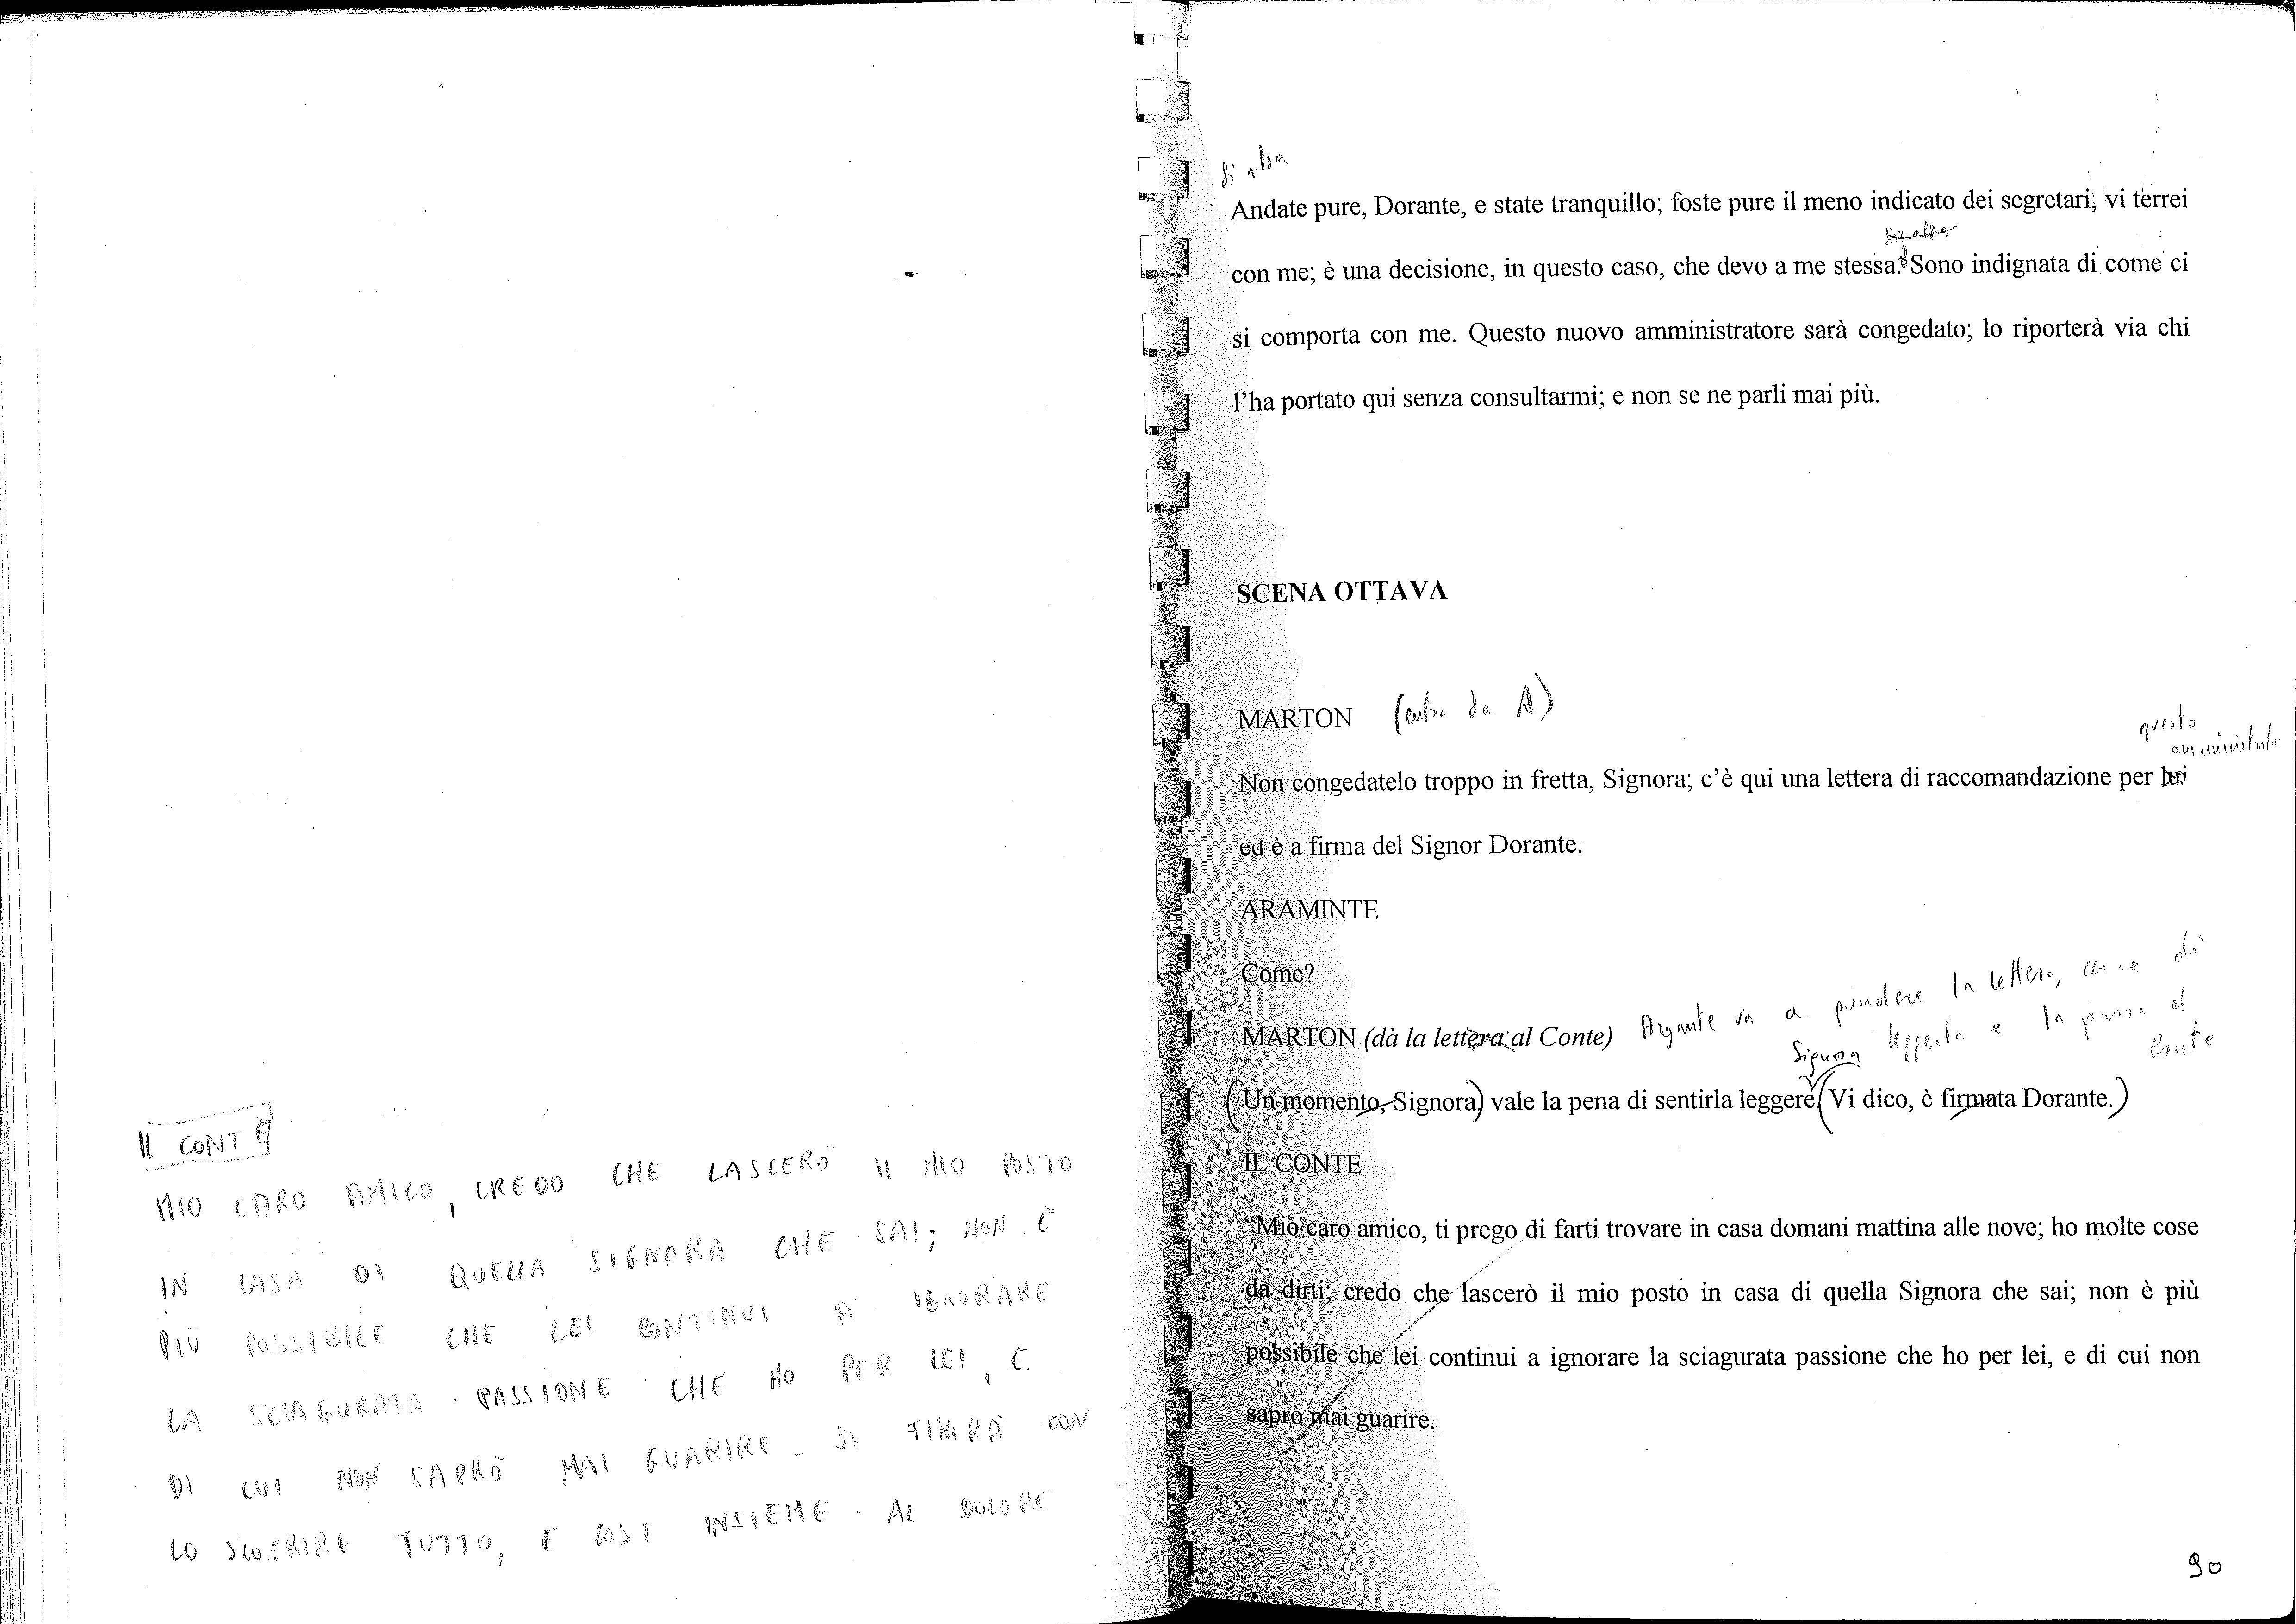 IL CONTE
MIO CARO AMICO, CREDO CHE LASCERÒ IL MIO POSTO
IN CASA DI QUELLA SIGNORA CHE SAI; NON È
PIÙ POSSIBILE CHE LEI CONTINUI A IGNORARE
LA SCIAGURATA PASSIONE CHE HO PER LEI, E
DI CUI NON SAPRÒ MAI GUARIRE. SI FINIRÀ CON
LO SCOPRIRE TUTTO, E COSÌ INSIEME AL DOLORE
si alza
Andate pure, Dorante, e state tranquillo; foste pure il meno indicato dei segretari, vi terrei
si alza
con me; è una decisione, in questo caso, che devo a me stessa. Sono indignata di come ci
si comporta con me. Questo nuovo amministratore sarà congedato; lo riporterà via chi
l'ha portato qui senza consultarmi; e non se ne parli mai più.
SCENA OTTAVA
MARTON (entra da A)
questo
amministrato
Non congedatelo troppo in fretta, Signora; c'è qui una lettera di raccomandazione per lui
ed è a firma del Signor Dorante.
ARAMINTE
Come?
MARTON (dà la lettera al Conte) Argante va a prendere la lettera, cerca di
leggerla e la passa al
Conte
Signora
(Un momento, Signora) vale la pena di sentirla leggere. (Vi dico, è firmata Dorante.)
IL CONTE
“Mio caro amico, ti prego di farti trovare in casa domani mattina alle nove; ho molte cose
da dirti; credo che lascerò il mio posto in casa di quella Signora che sai; non è più
possibile che lei continui a ignorare la sciagurata passione che ho per lei, e di cui non
saprò mai guarire.
90